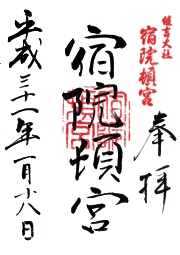 奉拝
住吉大社
宿院頓宮
宿院頓宮
平成三十一年一月十八日